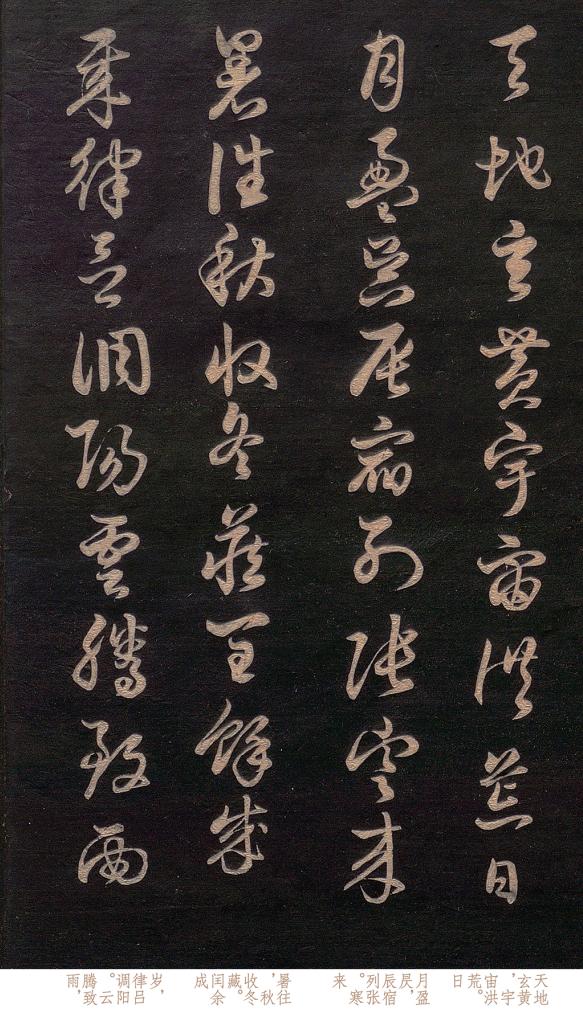 天地玄黃宇宙洪荒日
月盈昃辰宿列張寒來
暑往秋收冬藏閏餘成
歲律呂調陽雲騰致雨
天地玄黄，宇宙洪荒。日
月盈昃，辰宿列张。寒来
暑往，秋收冬藏。闰余成
岁，律吕调阳。云腾致雨，